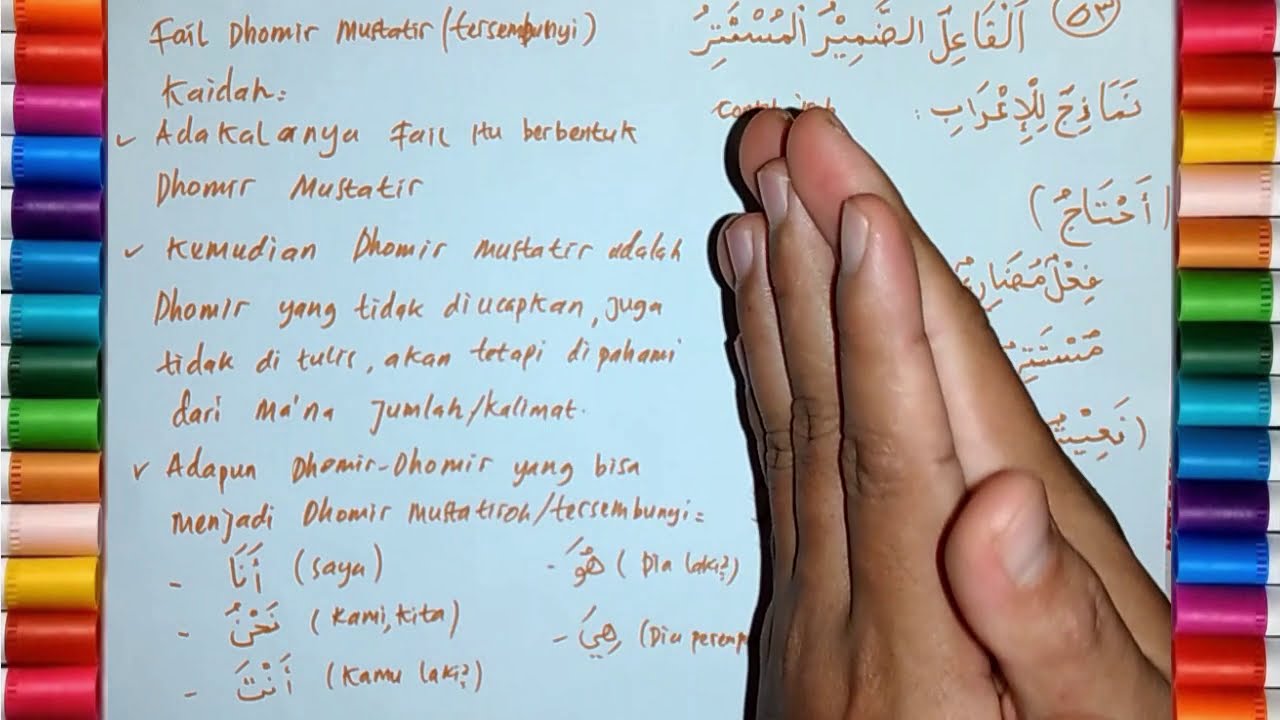 Fail Dhomir Mustatir (tersembunyi)
Kaidah:
✓ Adakalanya Fail Itu berbentuk
Dhomir Mustatir
✓ Kemudian Dhomir mustatir adalah
Dhomir yang tidak diucapkan, juga
tidak di tulis, akan tetapi dipahami
dari Ma'na Jumlah/kalimat.
✓ Adapun Dhomir-Dhomir yang bisa
menjadi Dhomir Mustatiroh/tersembunyi:
- أَنَا (saya)
- نَحْنُ (Kami, kita)
- أَنْتَ (Kamu laki²)
- هُوَ (Dia laki²)
- هِيَ (Dia
٥٣
اَلْفَاعِلُ الضَّمِيْرُ الْمُسْتَتِرُ
نَمَاذِجُ لِلْإِعْرَابِ :
(أَحْتَاجُ)
فِعْلٌ